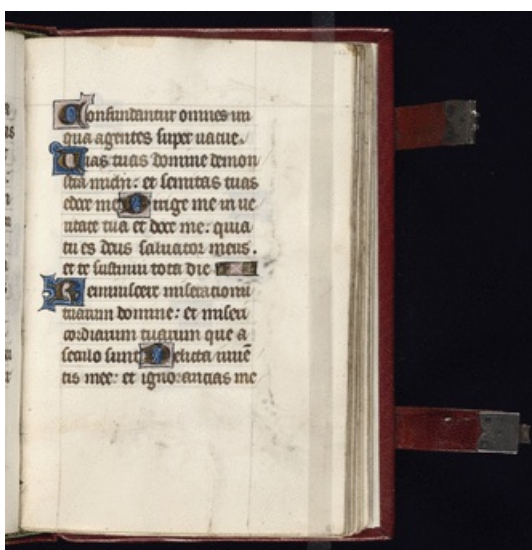 Confundantur omnes ini
qua agentes super uacue.
Uias tuas domine demon
stra michi: et semitas tuas
edoce me Dirige me in ue
ritate tua et doce me: quia
tu es deus saluator meus.
et te sustinui tota die
Reminiscere miserationū
tuarum domine: et miseri
cordiarum tuarum que a
seculo sunt Delicta iuuē
tis mee: et ignorancias me